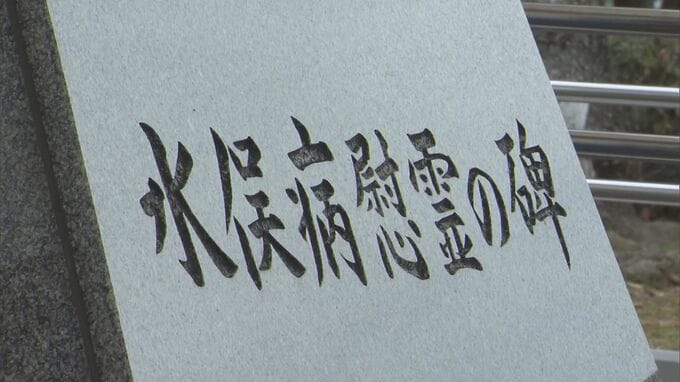 水俣病慰霊の碑